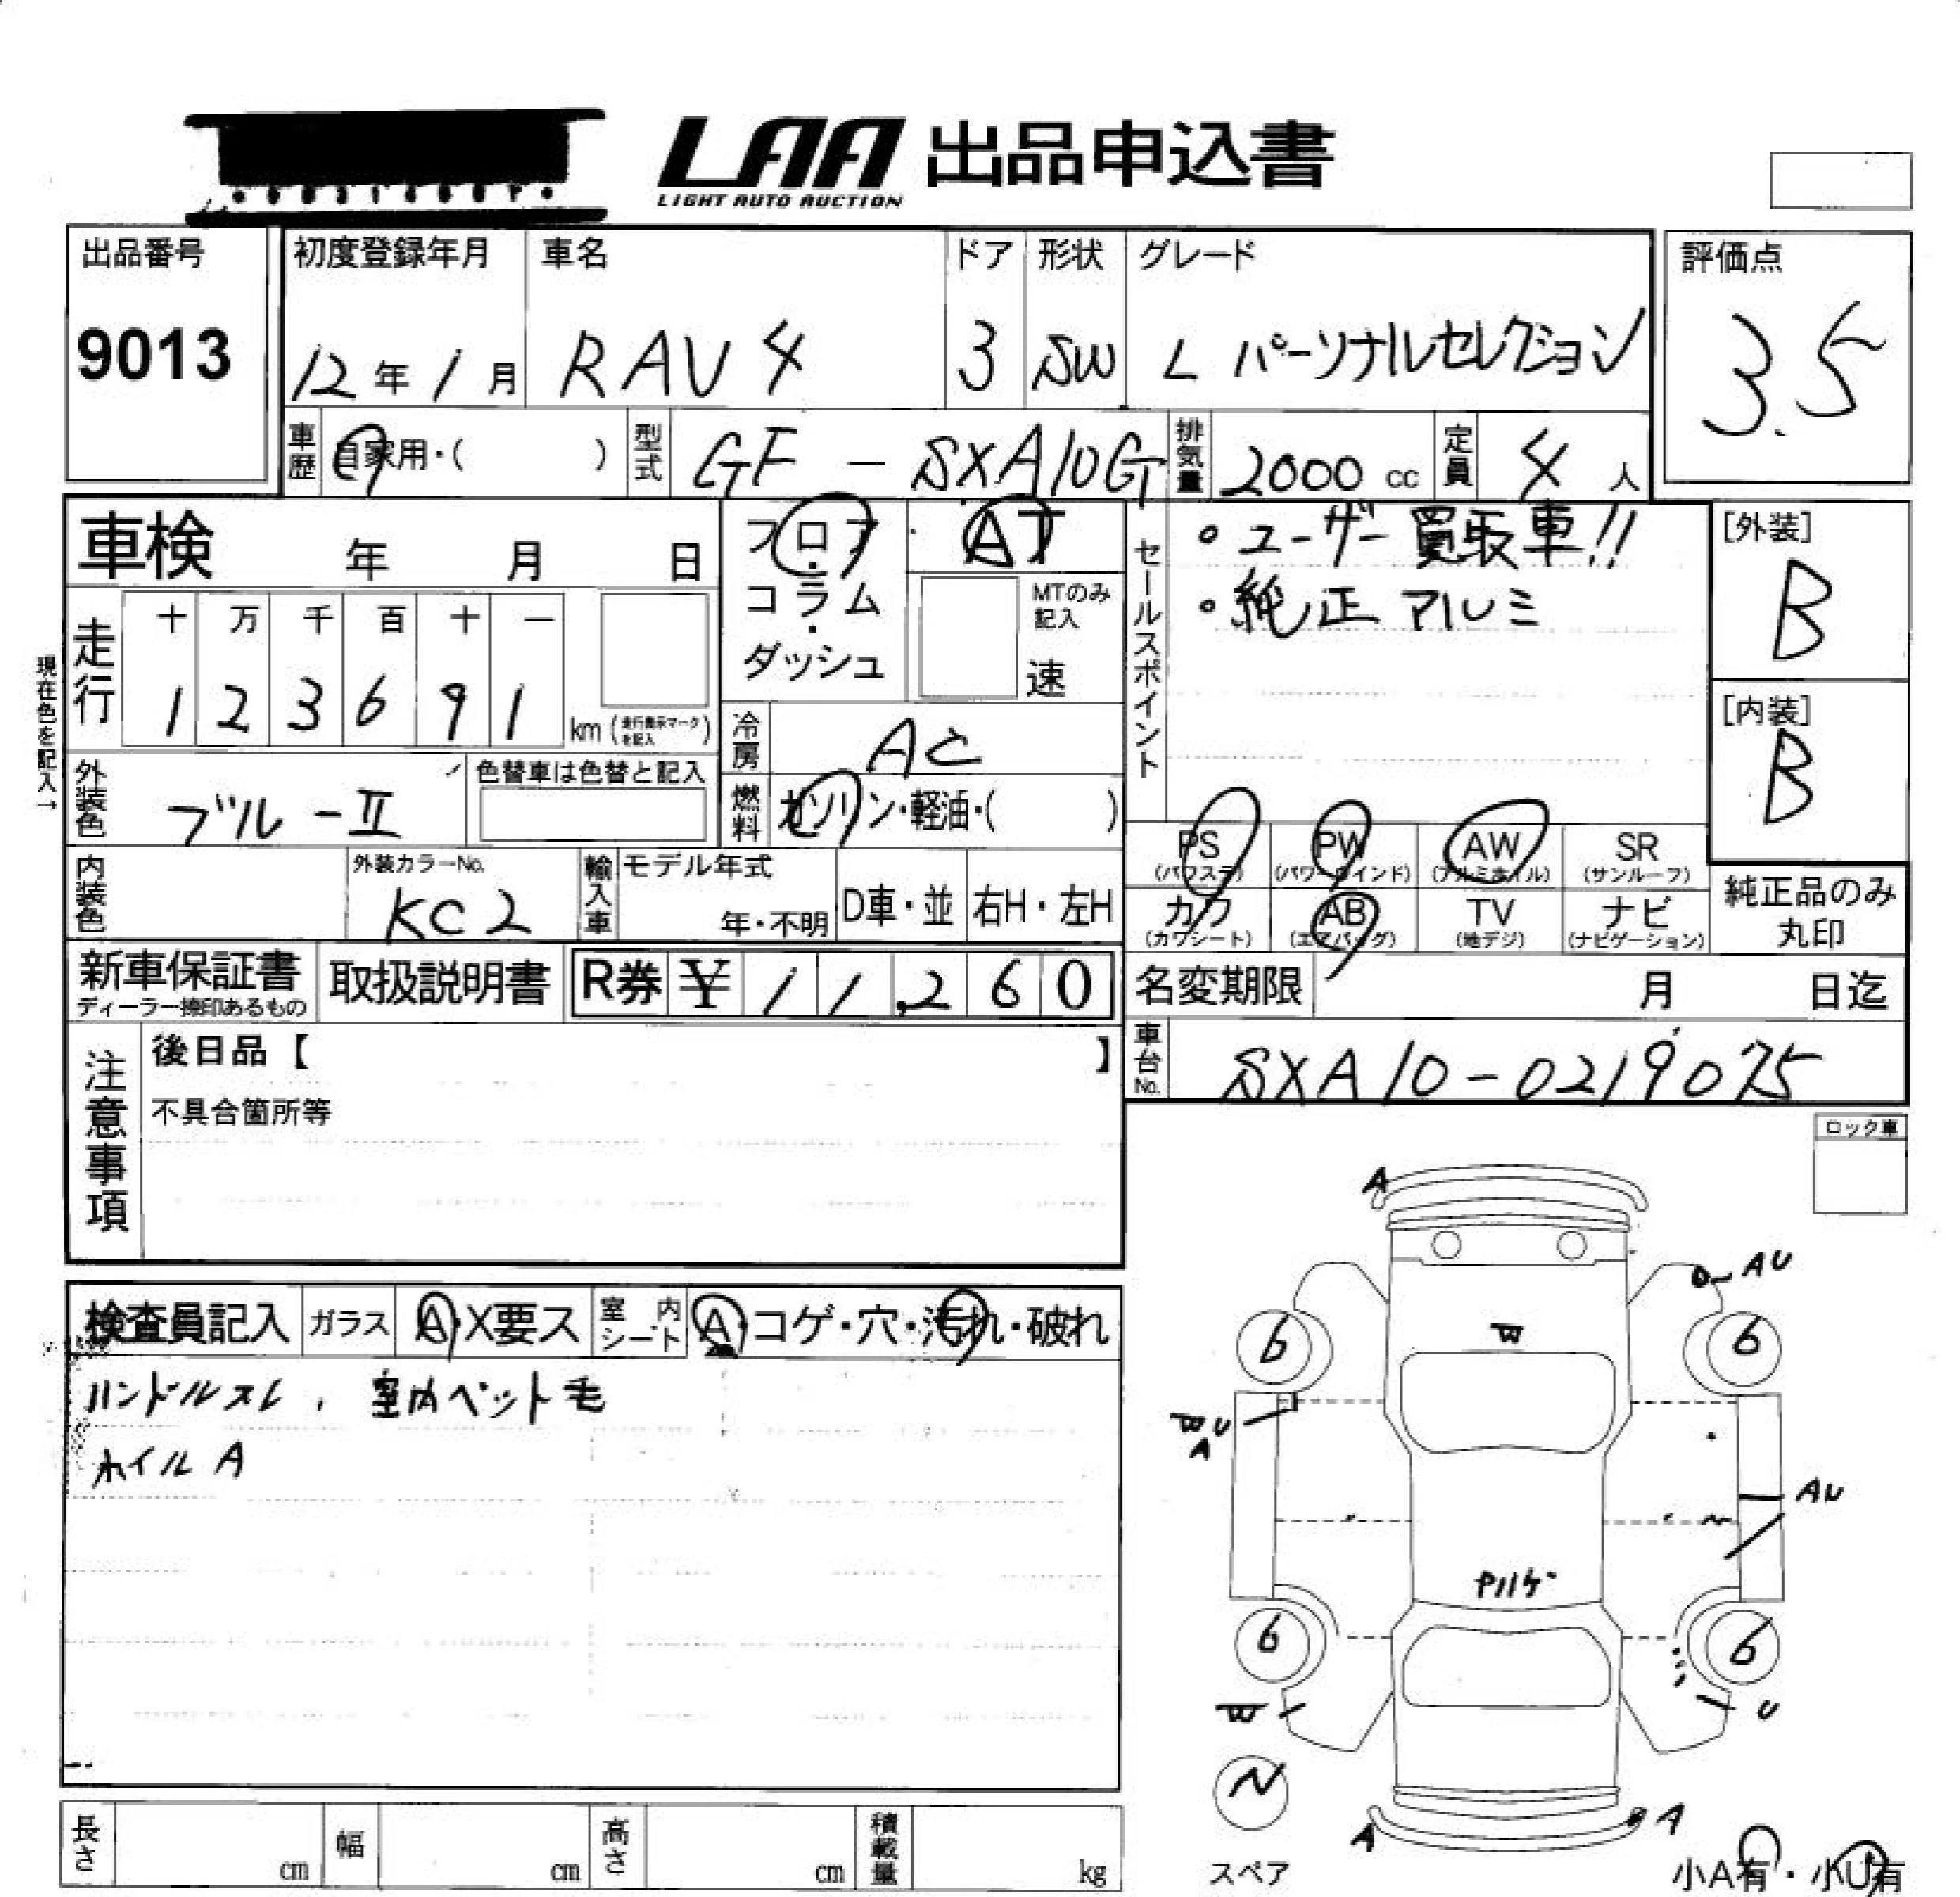 LAA 出品申込書
LIGHT AUTO AUCTION
出品番号
9013
初度登録年月
12年1月
車名
RAV4
ドア
3
形状
SW
グレード
L パーソナルセレクション
評価点
3.5
車歴
自家用・( )
型式
GF-SXA10G
排気量
2000 cc
定員
4 人
車検 年 月 日
フロア・コラム・ダッシュ
AT
MTのみ記入
速
セールスポイント
・ユーザー買取車!!
・純正アルミ
[外装]
B
[内装]
B
現在色を記入→
走行
十 万 千 百 十 一
1 2 3 6 9 1
km (走行表示マークを記入)
冷房
AC
外装色
ブルーII
色替車は色替と記入
燃料
ガソリン・軽油・( )
PS (パワステ)
PW (パワーウインド)
AW (アルミホイル)
SR (サンルーフ)
カワ (カワシート)
AB (エアバッグ)
TV (地デジ)
ナビ (ナビゲーション)
純正品のみ
丸印
内装色
外装カラーNo.
KC2
輸入車
モデル年式
年・不明
D車・並
右H・左H
新車保証書
ディーラー捺印あるもの
取扱説明書
R券 ¥ 11,260
名変期限 月 日迄
車台No.
SXA10-0219075
注意事項
後日品【 】
不具合箇所等
ロック車
検査員記入
ガラス
A・X要ス
室内シート
A・コゲ・穴・汚れ・破れ
ハンドルスレ, 室内ペット毛
ホイルA
A
AU
W
6
6
WU
A
AU
ヤハゲ
6
6
W
U
N
スペア
A
A
小A有・小U有
長さ cm
幅 cm
高さ cm
積載量 kg